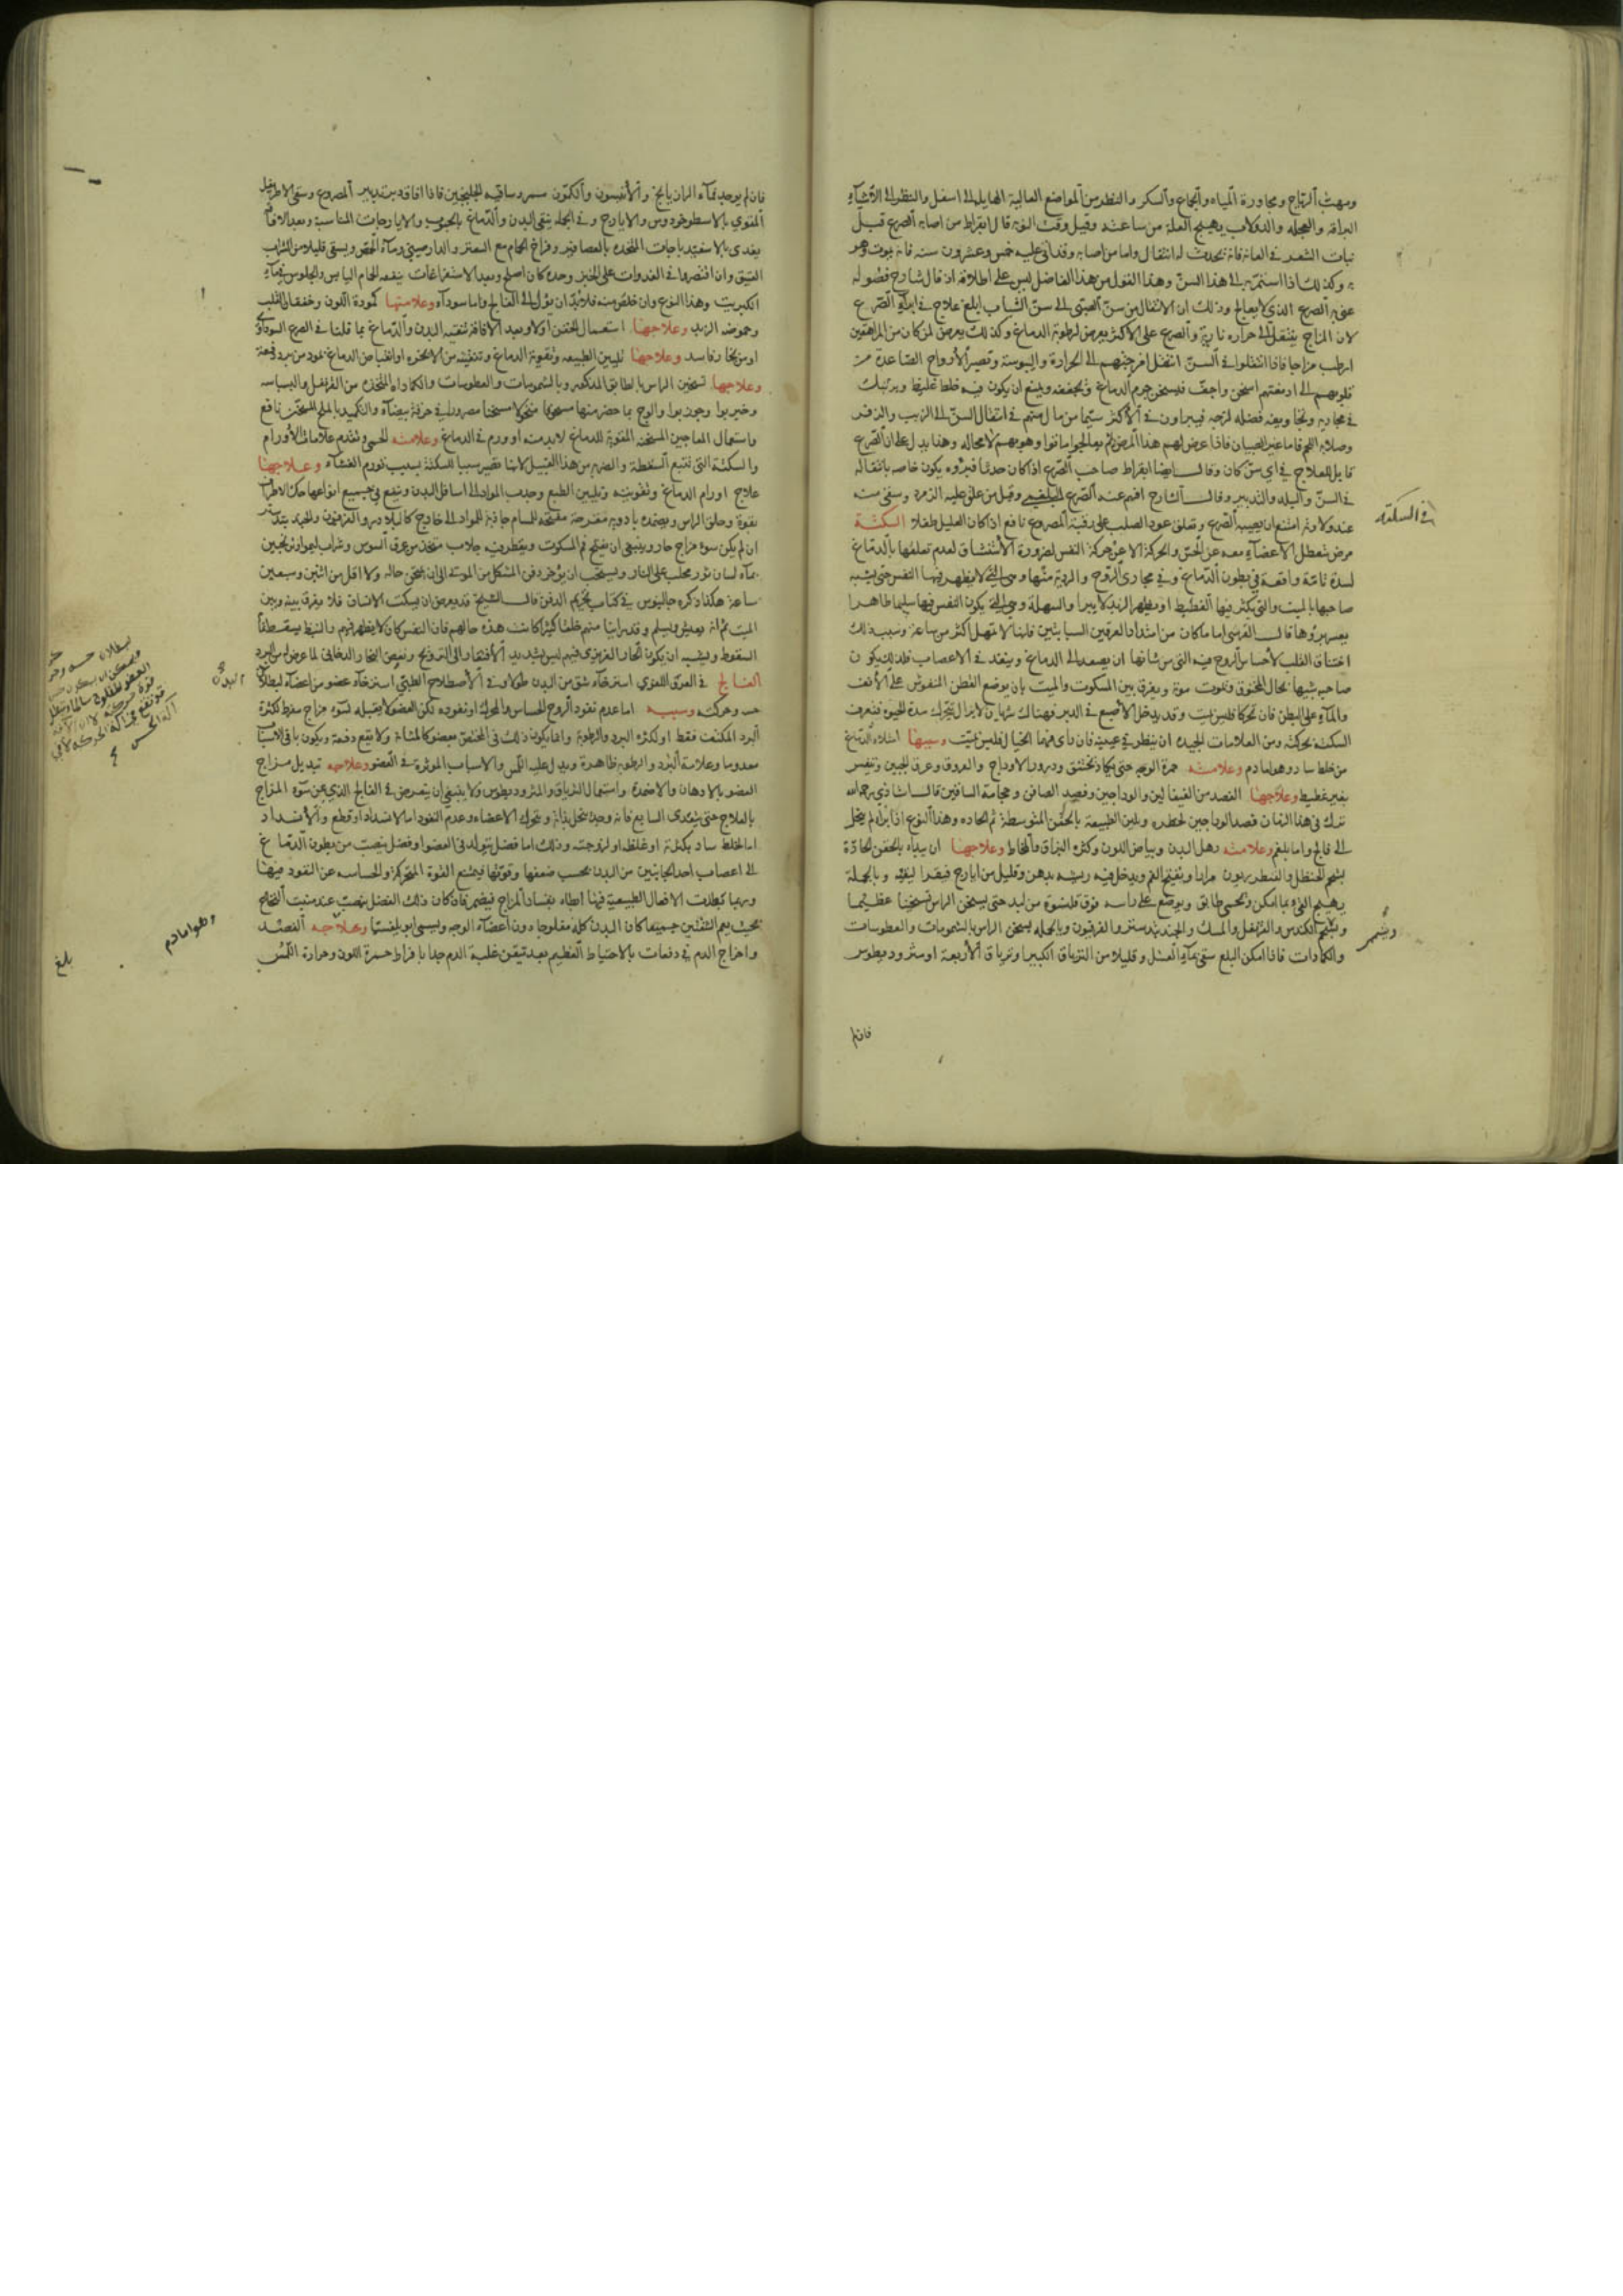 ومهبّ الرياح ومجاورة المياه والجماع والسكر والنظر من المواضع العالية الهايلة الى اسفل والنظر الى الاشياء
البراقة والعجلة والدولاب يهيج العلة من ساعته وقيل وقت النوبة قال ابقراط من اصابه الصرع قبل
نبات الشعر في العانة فانه يحدث له انتقال واما من اصابه وقد اتى عليه خمس وعشرون سنة فانه يموت وهو
به وكذلك اذا استمر به الى هذا السن وهذا القول من هذا الفاضل ليس على اطلاقه اذ قال شارح فصوله
عنى به الصرع الذي لا يعالج وذلك ان الانتقال من سن الصبى الى سن الشباب ابلغ علاج في ابراء الصرع
لان المزاج ينتقل الى حرارة نارية والصرع على الاكثر يعرض لرطوبة الدماغ وكذلك يعرض لمن كان من المراهقين
ارطب مزاجا فاذا انتقلوا في السن انتقل امزجتهم الى الحرارة واليبوسة وتصير الارواح الصاعدة من
قلوبهم الى ادمغتهم اسخن واجف فيسخن جرم الدماغ ويجففه ويمنع ان يكون فيه خلط غليظ ويرتبك
في مجاريه
قابل للعلاج في اي سن كان وقال ايضا ابقراط صاحب الصرع اذا كان حدثا فبرؤه يكون خاصة بانتقاله
في السن والبلد والتدبير وقال الشارح افهم عنه الصرع البلغمي وقيل من علق عليه الزمرد وسقي منه
عند ولادته امتنع ان يصيبه الصرع وتعلق عود الصليب على رقبة المصروع نافع اذا كان العليل طفلا السكتة
مرض تتعطل الاعضاء معه عن الحس والحركة الا عن حركة النفس لضرورة الاستنشاق لعدم تعلقها بالدماغ
لسدة تامة واقعة في بطون الدماغ وفي مجاري الروح والردية منها وهي التي لا يظهر فيها النفس حتى يشبه
صاحبها بالميت والتي يكثر فيها الغطيط او يظهر الزبد لا يبرأ والسهلة وهي التي يكون النفس فيها سليما ظاهرا
اختناق القلب لاحتباس الروح فيه التي من شانها ان يصعد الى الدماغ وينفذ في الاعصاب فلذلك يكون
صاحبه شبيها بحال المخنوق ويموت موته ويفرق بين المسكوت والميت بان يوضع القطن المنفوش على الانف
والماء على البطن فان تحركا فليس بميت وقد يدخل الاصبع في الدبر فهناك شريان لا يزال يتحرك مدة الحيوة فتعرف
السكتة بحركته ومن العلامات الجيدة ان ينظر في عينيه فان راى فيهما الخيال فليس بميت وسببها امتلاء الدماغ
من خلط ساد وهو اما دم وعلامته حمرة الوجه حتى يكاد يختنق ودرور الاوداج والعروق وعرق الجبين وتنفس
بغير غطيط وعلاجها الفصد من القيفالين والوداجين وفصد الصافن وحجامة الساقين قال الشاذي رحمه الله
ترك في هذا الزمان فصد الوداجين لخطره ويلين الطبيعة بالحقن المتوسطة ثم الحادة وهذا النوع اذا برأ لم ينحل
الى فالج واما بلغم وعلامته رهل البدن وبياض اللون وكثرة البزاق والمخاط وعلاجها ان يبدأ بالحقن الحادة
بشحم الحنظل والقنطوريون مرارا ويفتح الفم ويدخل فيه ريشة بدهن وقليل من ايارج فيقرا ليقيء وبالجملة
يهيج القيء بما امكن ويحمى طابق ويوضع على راسه فوق قلنسوة من لبد حتى يسخن الراس تسخينا عظيما
ويشم الكندس والقرنفل والمسك والجندبيدستر والفرفيون وبالجملة يسخن الراس بالشمومات والعطوسات
والكمادات فاذا امكن البلع سقي بماء العسل وقليلا من الترياق الكبير او ترياق الاربعة او مثروديطوس
فان لم
في السكتة
ويشم
فان لم يوجد فماء الرازيانج والانيسون والكمون
المقوي بالاسطوخودوس والايارج وفي الجملة ينقى البدن والدماغ بالحبوب والايارجات المناسبة وبعد الافاقة
يغذى بالاسفيدباجات المتخذة بالعصافير وفراخ الحمام مع السعتر والدارصيني وماء الحمص ويسقى قليلا من الشراب
العتيق وان اقتصروا في الغدوات على الخبز وحده كان اصلح وبعد الاستفراغات ينفعه الحمام اليابس والجلوس في ماء
الكبريت وهذا النوع وان خلص منه فلا بد ان يؤل الى الفالج واما سوداء وعلامتها كمودة اللون وخفقان القلب
وحموضة الزبد وعلاجها استعمال الحقن اولا وبعد الافاقة تنقية البدن والدماغ بما قلنا في الصرع السوداوي
او من بخار فاسد وعلاجها تليين الطبيعة وتقوية الدماغ وتنقيته من الابخرة او انقباض الدماغ
وعلاجها تسخين الراس بالطابق المذكور وبالشمومات والعطوسات والكمادات المتخذة من القرنفل والبسباسة
واستعمال المعاجين المسخنة المقوية للدماغ لا بد منه او ورم في الدماغ وعلامته الحمى وتقدم علامات الاورام
والسكتة التي تتبع السقطة والضربة من هذا القبيل لانها تصير سببا للسكتة بسبب تورم الغشاء وعلاجها
علاج اورام الدماغ وتقويته وتليين الطبع وجذب المواد الى اسافل البدن وينفع في جميع انواعها حك الاطراف
بقوة وحلق الراس ويضمده بادوية مقرحة مفتحة للمسام جاذبة للمواد الى خارج كالبلادر والفرفيون
ان لم يكن سوء مزاج حار وينبغي ان يفتح فم المسكوت ويقطر فيه جلاب متخذ من عرق السوس
بماء لسان ثور محلب على النار ويستحب ان يؤخر دفن المشكل من الموتى الى ان يتحقق حاله ولا اقل من اثنين وسبعين
ساعة هكذا ذكره جالينوس في كتاب تحريم الدفن قال الشيخ قد يعرض ان يسكت الانسان فلا يفرق بينه وبين
الميت ثم انه يعيش ويسلم وقد راينا منهم خلقا كثيرا كانت هذه حالهم فان النفس كان لا يظهر فيهم والنبض يسقط تمام
السقوط ويشبه ان يكون الحار الغريزي فيهم ليس بشديد الافتقار الى الترويح ونفض البخار الدخاني لما عرض له من البرد
الفالج في العرف اللغوي استرخاء شق من البدن طولا وفي الاصطلاح الطبي استرخاء عضو من اعضائه لبطلان
حسه وحركته وسببه اما عدم نفوذ الروح الحساس والمحرك او نفوذه لكن العضو لا يقبله لسوء مزاج مفرط لكثرة
البرد المكثف فقط او لكثرة البرد والرطوبة وانما يكون ذلك في المختص بعضو كالمثانة ولا يقع دفعة ويكون باقي الاسباب
معدوما وعلامة البرد والرطوبة ظاهرة ويدل عليه اللمس والاسباب الموثرة في العضو وعلاجه تبديل مزاج
العضو بالادهان والاضمدة واستعمال الترياق والمثروديطوس ولا ينبغي ان يتعرض في الفالج الذي عن سوء المزاج
بالعلاج حتى يتعدى السابع فانه وحده ينحل بذاته ويتحرك الاعضاء وعدم النفوذ اما لانسداد او قطع والانسداد
اما لخلط ساد بكثرته او غلظه او لزوجته وذلك اما فضل تولد في العضو او فضل ينصب من بطون الدماغ
الى اعصاب احد الجانبين من البدن بحسب ضعفها وقوتها فيمنع القوة المتحركة والحساسة عن النفوذ فيها
وربما تبطلت الافعال الطبيعية فيها ابطاء بفساد المزاج فيضمر فان كان ذلك الفضل ينصب عند منبت النخاع
بحيث يعم الشقين جميعا كان البدن كله مفلوجا دون اعضاء الوجه ويسمى ابوبلقسيا وعلاجه الفصد
واخراج الدم في دفعات بالاحتياط العظيم بعد تيقن غلبة الدم جدا بافراط حمرة اللون وحرارة اللمس
وهو اما دم
بلغ